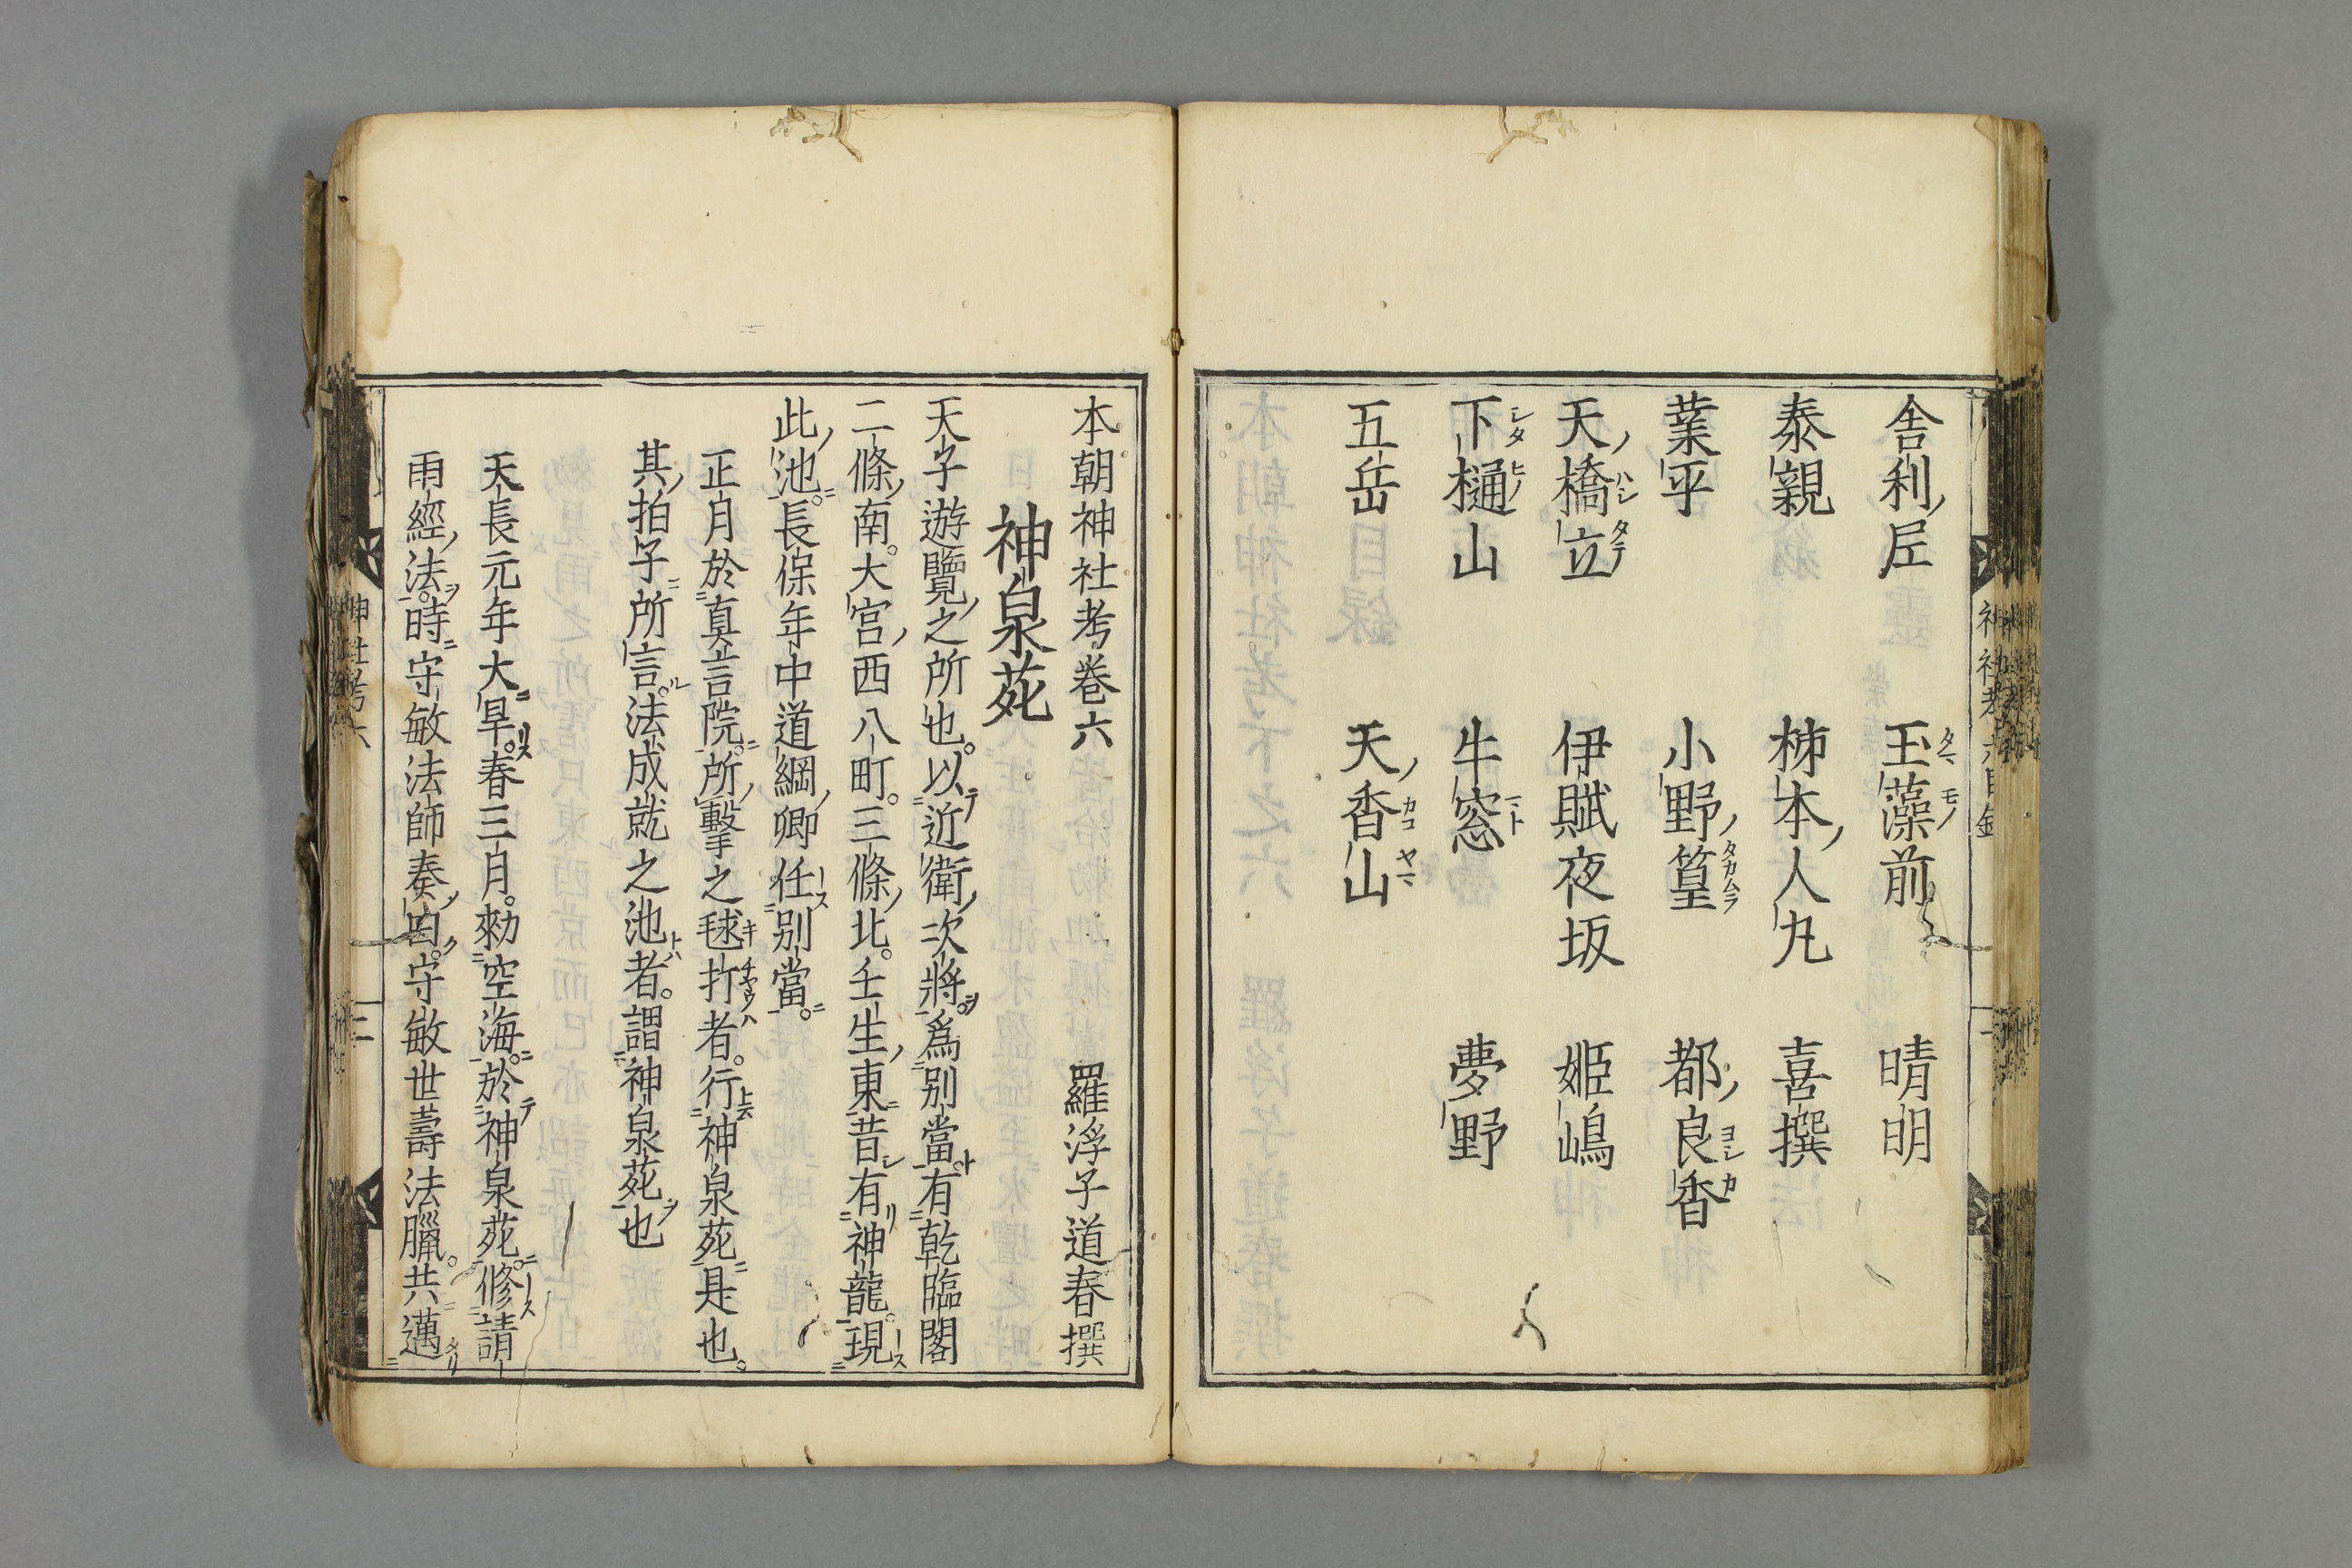 舎利尼 玉藻前 晴明
泰親 柹本人丸 喜撰
業平 小野篁 都良香
天橋立 伊賦夜坂 姫嶋
下樋山 牛窓 夢野
五岳 天香山
本朝神社考巻六 羅浮子道春撰
神泉苑
天子遊覽之所也。以近衛次將。爲别當。有乾臨閣
二條南。大宮西八町。三條北。壬生東昔有神龍。現
此池。長保年中道綱卿任别當。
正月於真言院。所擊之毬打者。行神泉苑是也。
其拍子所言。法成就之池者。謂神泉苑也
天長元年大旱。春三月。勑空海。於神泉苑。修請
雨經法。時守敏法師奏曰。守敏世壽法臘。共邁
神社考六
二